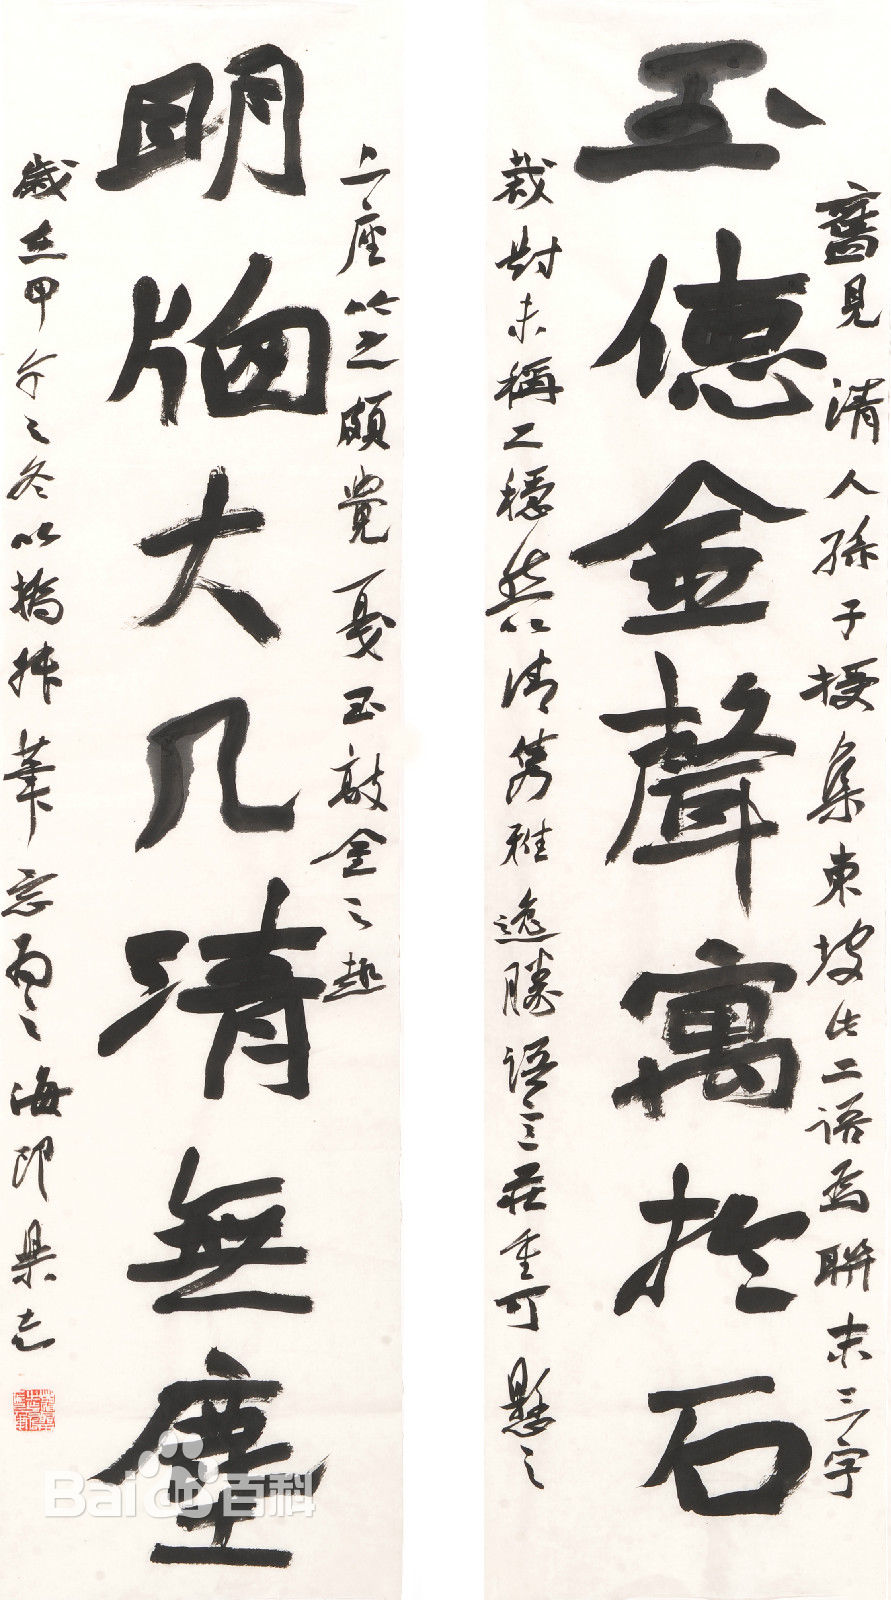 舊見清人孫子授集東坡此二語為聯末三字
玉德金聲寓於石
裁對未稱工穩然以清雋雅逸勝語莊重可懸之
座頗覺戛玉敲金之趣
明牕大几清無塵
歲在甲午之冬以筆忘為之海印杲志
Baidu百科